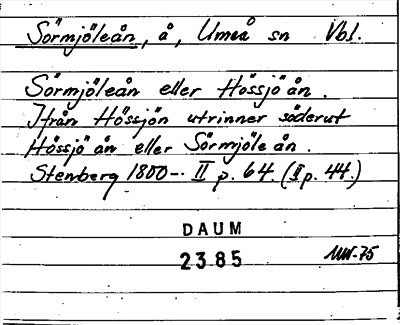 Sörmjöleån, å, Umeå sn Vbl.
Sörmjöleån eller Hössjöån.
Ifrån Hössjön utrinner söderut
Hössjöån eller Sörmjöleån.
Stenberg 1800-- II p. 64. (I p. 44.)
DAUM
2385
MW-75